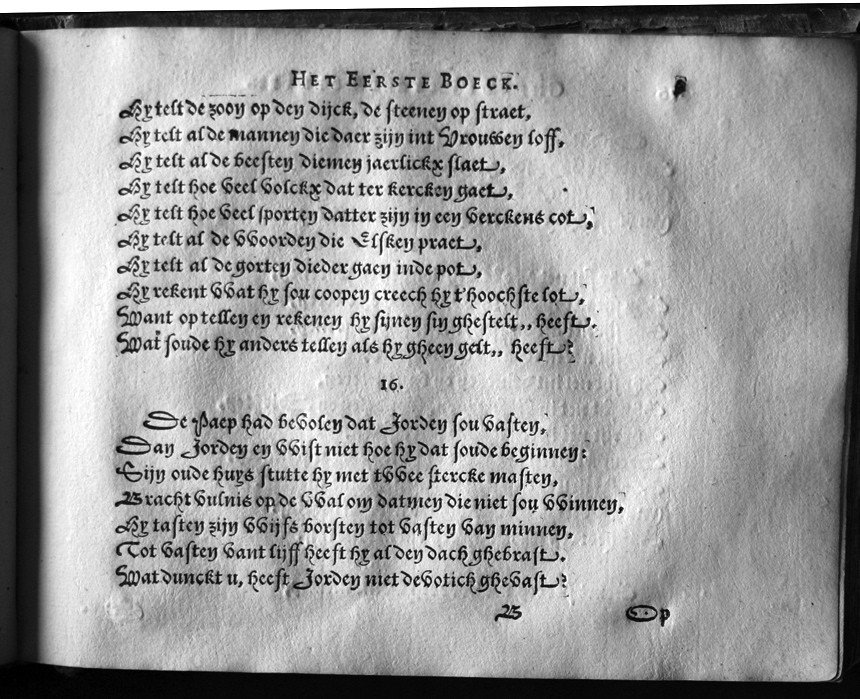 HET EERSTE BOECK.
Hy telt de zooy op den dijck, de steenen op straet,
Hy telt al de mannen die daer zijn int Vrouwen loff,
Hy telt al de beesten diemen jaerlickx slaet,
Hy telt hoe veel volckx dat ter kercken gaet,
Hy telt hoe veel sporten datter zijn in een verckens cot,
Hy telt al de VVoorden die Elsken praet,
Hy telt al de gorten dieder gaen inde pot,
Hy rekent VVat hy sou coopen creech hy t'hoochste lot,
Want op tellen en rekenen hy sijnen sin ghestelt,, heeft.
Wat soude hy anders tellen als hy gheen gelt,, heeft?
16.
De Paep had bevolen dat Jorden sou vasten,
Dan Jorden en VVist niet hoe hy dat soude beginnen:
Sijn oude huys stutte hy met tVVee stercke masten,
Bracht vulnis op de VVal om datmen die niet sou VVinnen,
Hy tasten zijn VVijfs borsten tot vasten van minnen,
Tot vasten vant lijff heeft hy al den dach ghebrast.
Wat dunckt u, heeft Jorden niet devotich ghevast?
B Op